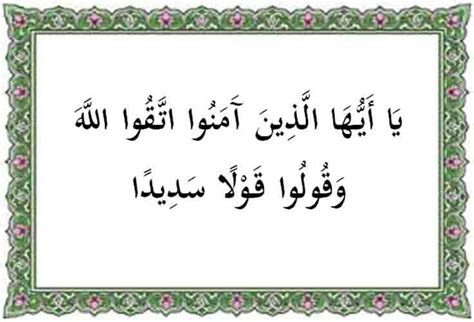 يَا أَيُّهَا الَّذِينَ آَمَنُوا اتَّقُوا اللَّهَ
وَقُولُوا قَوْلًا سَدِيدًا